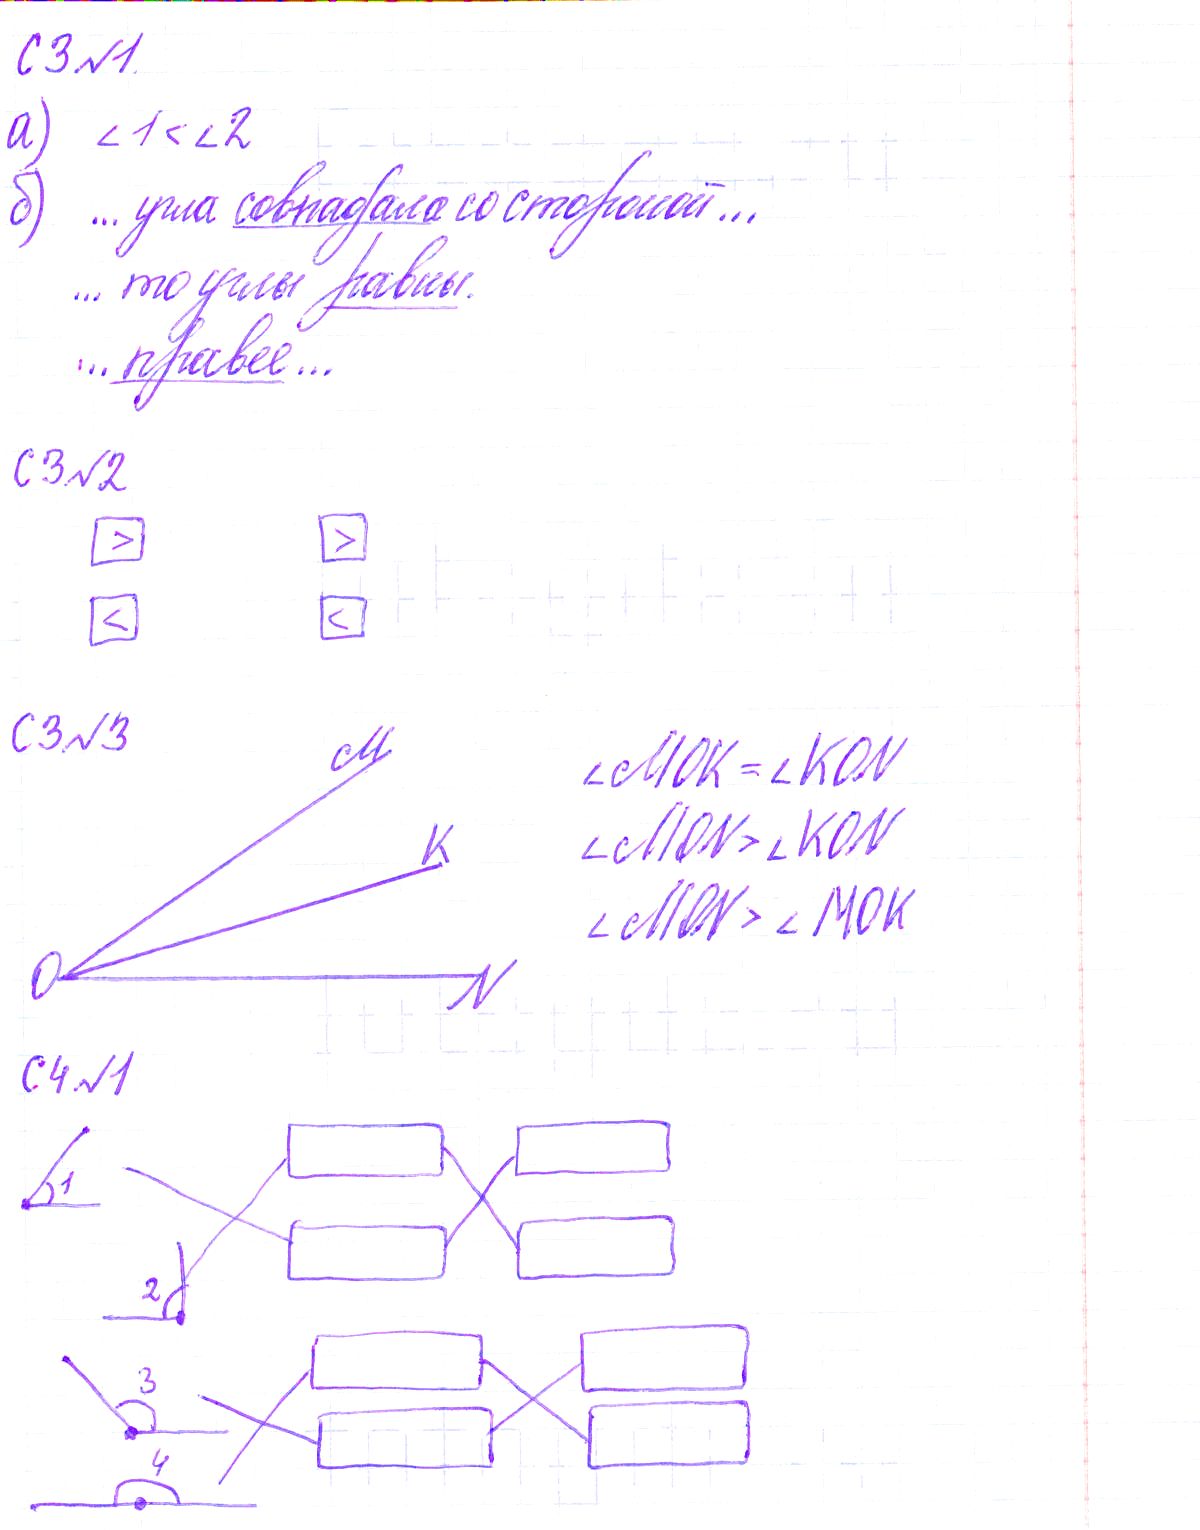 С3№1.
а) ∠1<∠2
б) ...угла совпадала со стороной...
...то углы равны.
...правее...
С3№2
> >
< <
С3№3
M
∠MOK=∠KON
K
∠MON>∠KON
∠MON>∠MOK
O
N
С4№1
1
2
3
4